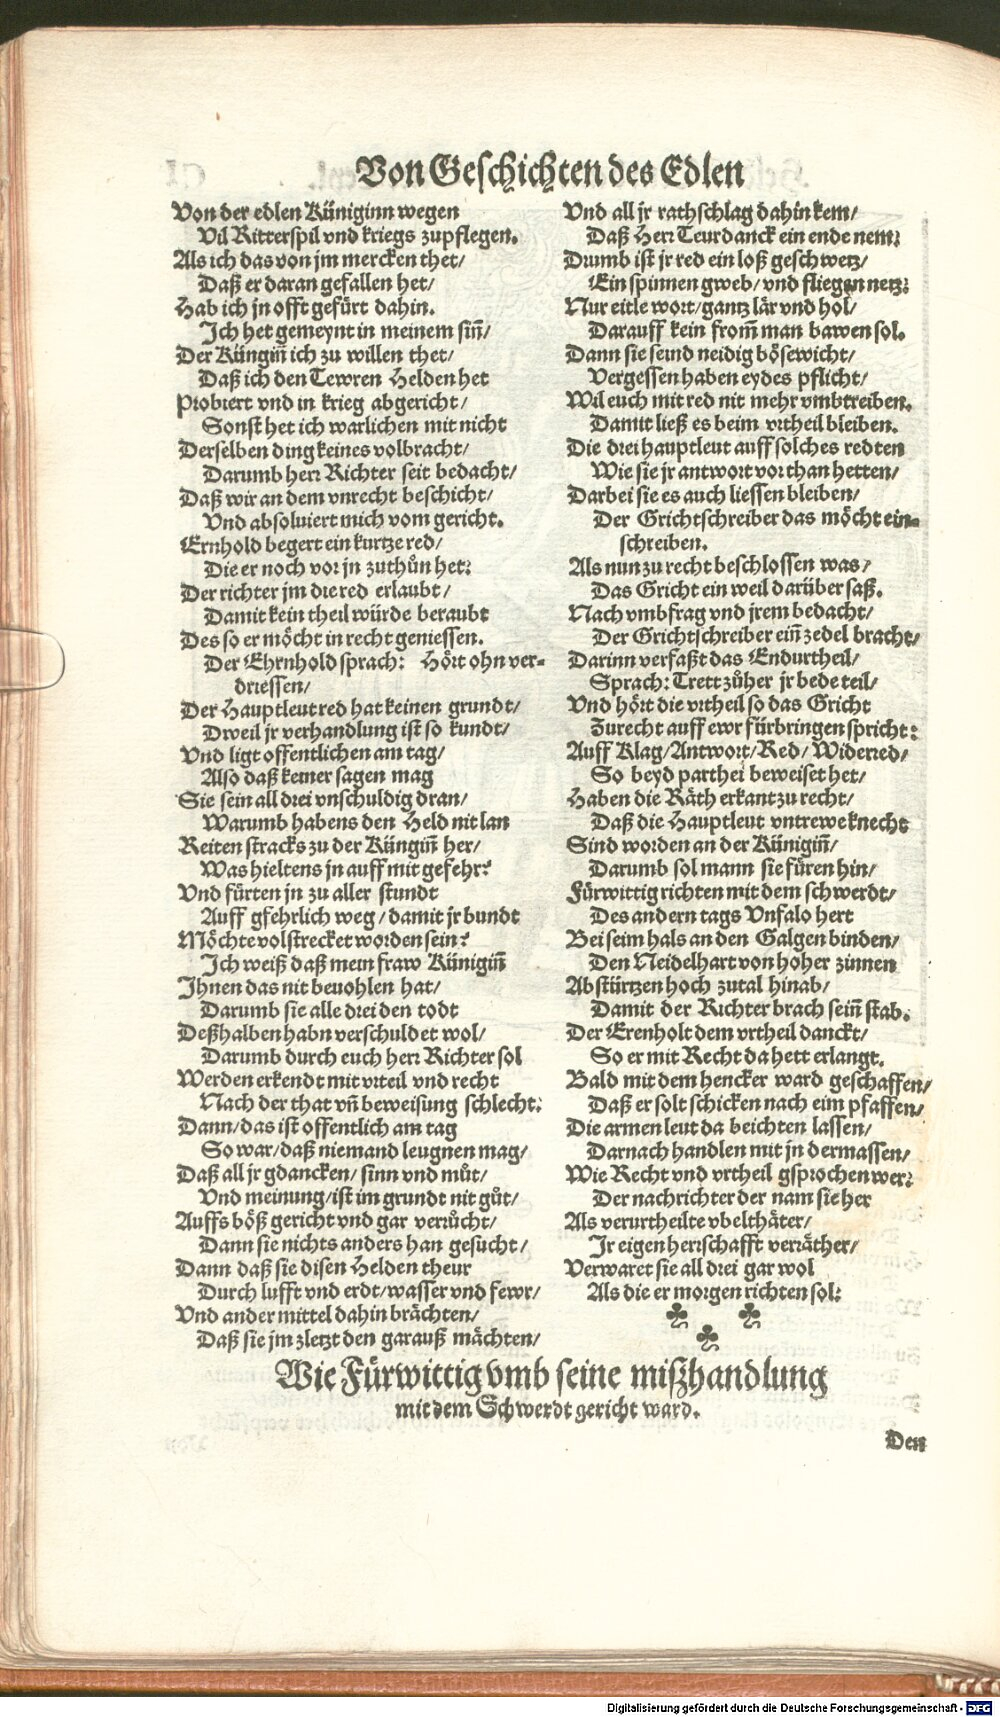 Von Geschichten des Edlen
Von der edlen Küniginn wegen
Vil Ritterspil vnd kriegs zupflegen.
Als ich das von jm mercken thet/
Daß er daran gefallen het/
Hab ich jn offt gefürt dahin.
Ich het gemeynt in meinem siñ/
Der Küngiñ ich zu willen thet/
Daß ich den Tewren Helden het
Probiert vnd in krieg abgericht/
Sonst het ich warlichen mit nicht
Derselben ding keines volbracht/
Darumb herr Richter seit bedacht/
Daß wir an dem vnrecht beschicht/
Vnd absoluiert mich vom gericht.
Ernhold begert ein kurtze red/
Die er noch vor jn zuthůn het:
Der richter jm die red erlaubt/
Damit kein theil würde beraubt
Des so er möcht in recht geniessen.
Der Ehrnhold sprach: Hört ohn ver-
driessen/
Der Hauptleut red hat keinen grundt/
Dweil jr verhandlung ist so kundt/
Vnd ligt offentlichen am tag/
Also daß keiner sagen mag
Sie sein all drei vnschuldig dran/
Warumb habens den Held nit lan
Reiten stracks zu der Küngiñ her/
Was hieltens jn auff mit gefehr?
Vnd fürten jn zu aller stundt
Auff gfehrlich weg/ damit jr bundt
Möchte volstrecket worden sein?
Ich weiß daß mein fraw Künigiñ
Ihnen das nit beuohlen hat/
Darumb sie alle drei den todt
Deßhalben habn verschuldet wol/
Darumb durch euch herr Richter sol
Werden erkendt mit vrteil vnd recht
Nach der that vñ beweisung schlecht:
Dann/das ist offentlich am tag
So war/daß niemand leugnen mag/
Daß all jr gdancken/ sinn vnd můt/
Vnd meinung/ist im grundt nit gůt/
Auffs böß gericht vnd gar verrůcht/
Dann sie nichts anders han gesucht/
Dann daß sie disen Helden theur
Durch lufft vnd erdt/wasser vnd fewr/
Vnd ander mittel dahin brächten/
Daß sie jm zletzt den garauß mächten/
Vnd all jr rathschlag dahin kem/
Daß Herr Teurdanck ein ende nem:
Drumb ist jr red ein loß geschwetz/
Ein spinnen gweb/ vnd fliegen netz:
Nur eitle wort/gantz lär vnd hol/
Darauff kein from̃ man bawen sol.
Dann sie seind neidig bösewicht/
Vergessen haben eydes pflicht/
Wil euch mit red nit mehr vmbtreiben.
Damit ließ es beim vrtheil bleiben.
Die drei hauptleut auff solches redten
Wie sie jr antwort vor than hetten/
Darbei sie es auch liessen bleiben/
Der Grichtschreiber das möcht ein-
schreiben.
Als nun zu recht beschlossen was/
Das Gricht ein weil darüber saß.
Nach vmbfrag vnd jrem bedacht/
Der Grichtschreiber eiñ zedel bracht/
Darinn verfaßt das Endurtheil/
Sprach: Trett zůher jr bede teil/
Vnd hört die vrtheil so das Gricht
Zurecht auff ewr fürbringen spricht:
Auff Klag/Antwort/Red/ Widerred/
So beyd parthei beweiset het/
Haben die Räth erkant zu recht/
Daß die Hauptleut vntrewe knecht
Sind worden an der Künigiñ/
Darumb sol mann sie füren hin/
Fürwittig richten mit dem schwerdt/
Des andern tags Vnfalo hert
Bei seim hals an den Galgen binden/
Den Neidelhart von hoher zinnen
Abstürtzen hoch zutal hinab/
Damit der Richter brach seiñ stab.
Der Erenholt dem vrtheil danckt/
So er mit Recht da hett erlangt.
Bald mit dem hencker ward geschaffen/
Daß er solt schicken nach eim pfaffen/
Die armen leut da beichten lassen/
Darnach handlen mit jn dermassen/
Wie Recht vnd vrtheil gsprochen wer:
Der nachrichter der nam sie her
Als verurtheilte vbelthäter/
Ir eigen herrschafft verräther/
Verwaret sie all drei gar wol
Als die er morgen richten sol:
Wie Fürwittig vmb seine mißhandlung
mit dem Schwerdt gericht ward.
Den
Digitalisierung gefördert durch die Deutsche Forschungsgemeinschaft - DFG